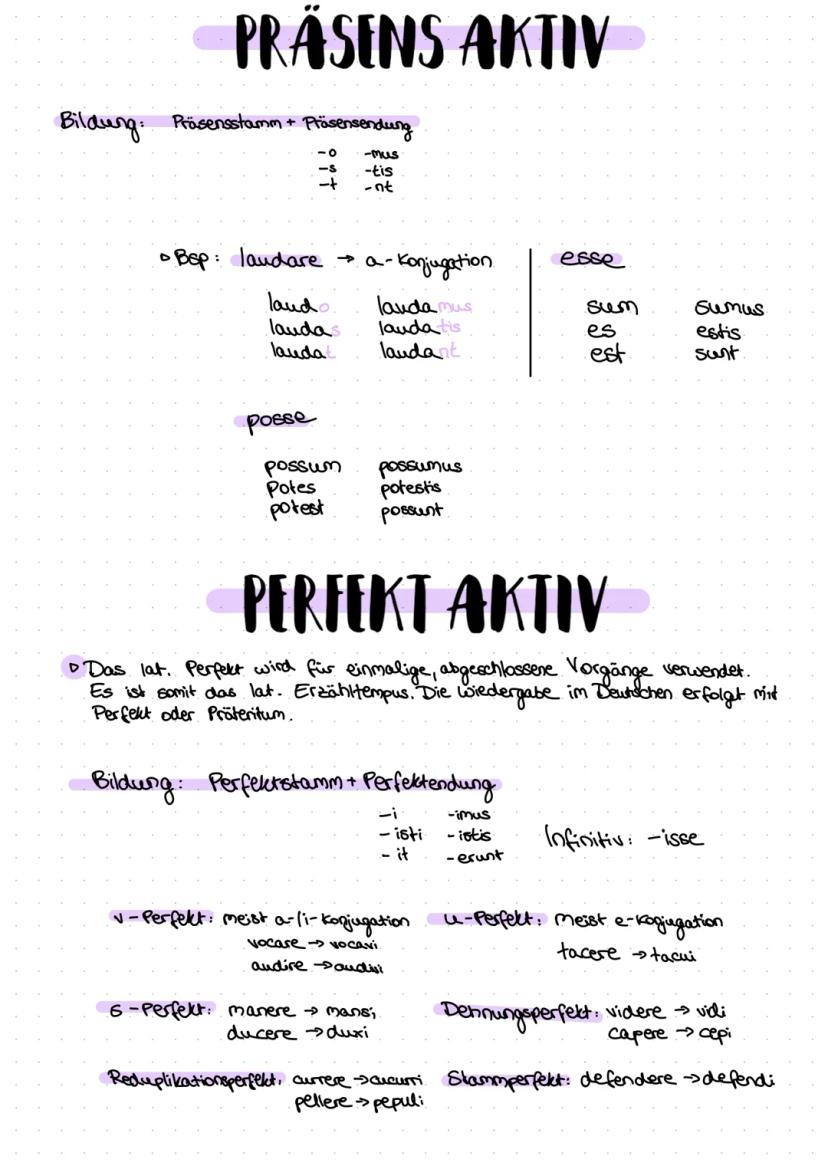 PRÄSENS AKTIV
Bildung: Präsensstamm + Präsensendung
-o -mus
-s -tis
-t -nt
▷ Bsp: laudare → a-Konjugation
laudo laudamus
laudas laudatis
laudat laudant
esse
sum sumus
es estis
est sunt
posse
possum possumus
Potes potestis
potest possunt
PERFEKT AKTIV
▷ Das lat. Perfekt wird für einmalige, abgeschlossene Vorgänge verwendet.
Es ist somit das lat. Erzähltempus. Die Wiedergabe im Deutschen erfolgt mit
Perfekt oder Präteritum.
Bildung: Perfektstamm + Perfektendung
-i -imus
-isti -istis
-it -erunt
Infinitiv: -isse
v-Perfekt: meist a-/i-Konjugation
vocare → vocavi
audire → audivi
u-Perfekt: meist e-Kojugation
tacere → tacui
s-Perfekt: manere → mansi
ducere → duxi
Dehnungsperfekt: videre → vidi
capere → cepi
Reduplikationsperfekt: currere → cucurri
pellere → pepuli
Stammperfekt: defendere → defendi